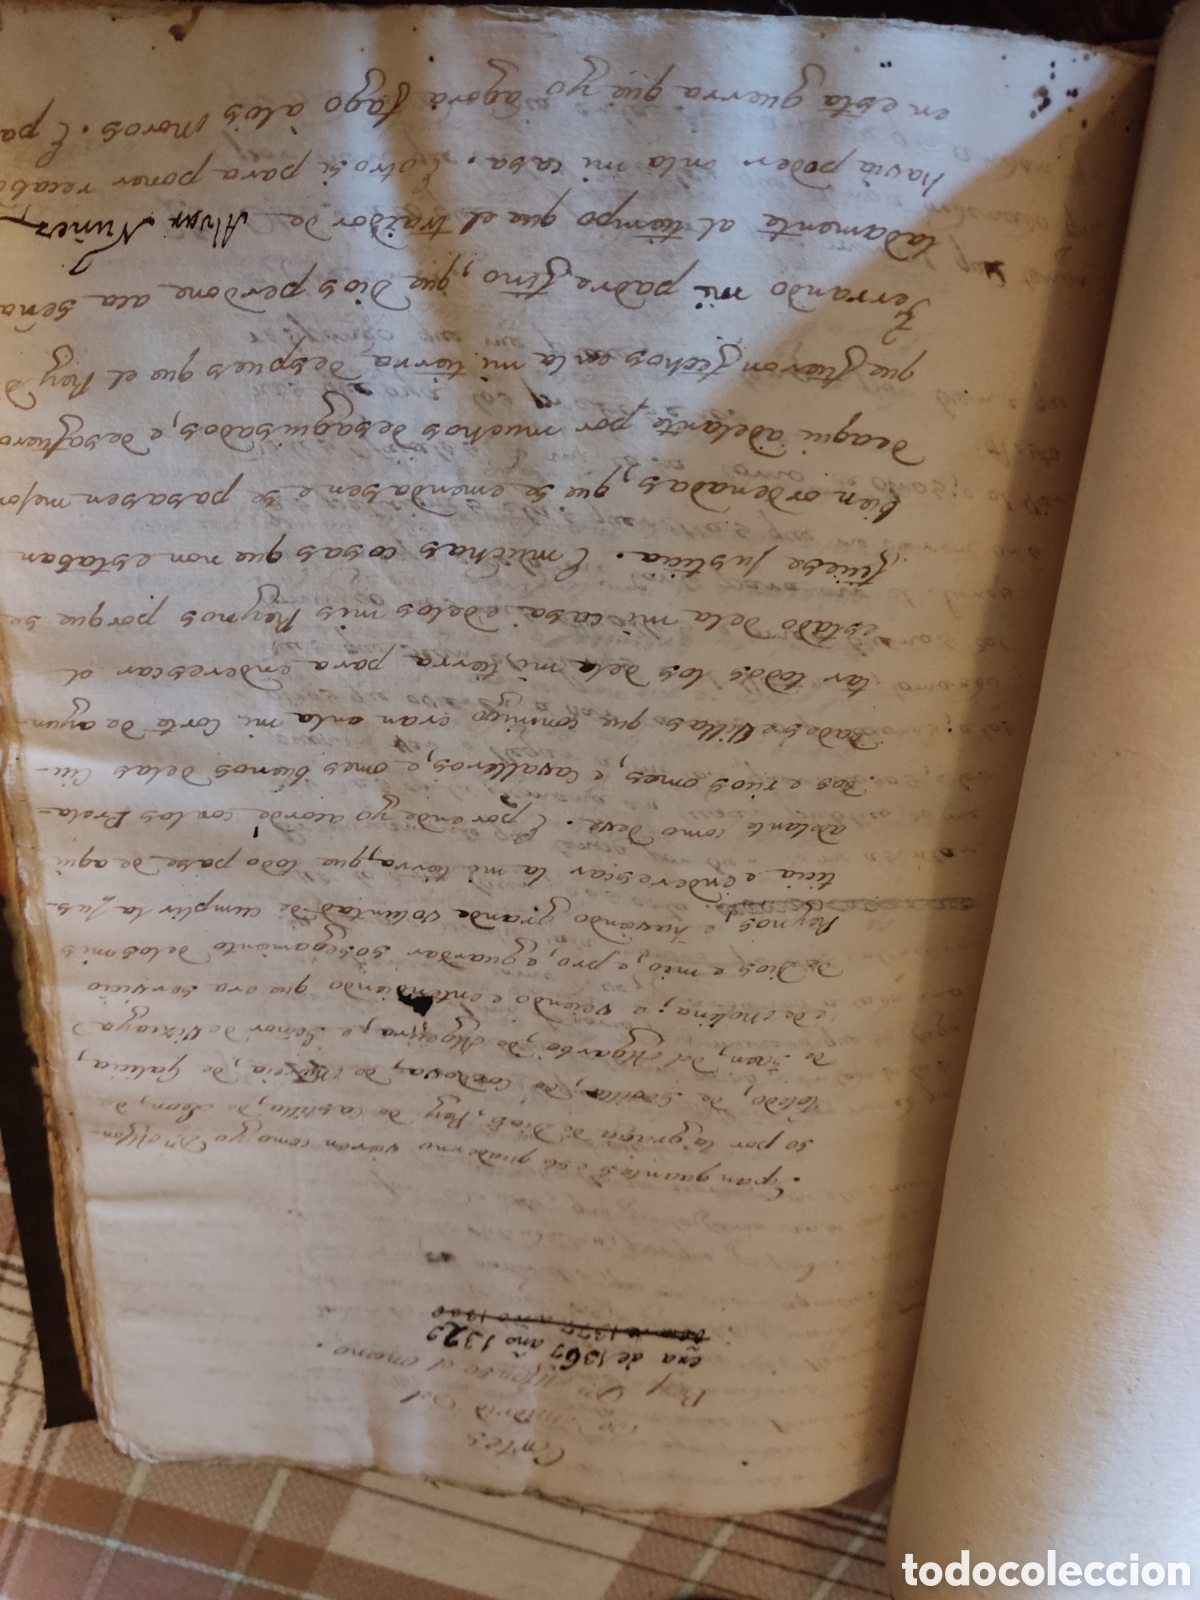 Cortes
de Madrid del
Rey Don Alfonso el onceno.
era de 1367 año 1329
Sepan quantos este quaderno vieren como yo Dn. Alfon-
so por la gracia de Dios, Rey de Castilla, de Leon, de
Toledo, de Sevilla, de Cordova, de Murcia, de Galicia,
de Jaen, del Algarbe, de Algecira, e Señor de Vizcaya
e de Molina; e veiendo e entendiendo que era servicio
de Dios e mio, e pro, e guardar sosegamiento de los mis
Reynos, e haviendo grande voluntad de cumplir la Jus-
ticia e enderescar la mi tierra, que todo pase de aqui
adelante como deve. E por ende yo acorde con los Prela-
dos e ricos omes, e cavalleros, e omes buenos de las Ciu-
dades e Villas que conmigo eran en la mi Corte de ayun-
tar todos los de la mi tierra para enderescar el
estado de la mi casa e de los mis Reynos porque se
ficiese justicia. E muchas cosas que non estaban
bien ordenadas, que se emendasen e se pasasen mejor
deaqui adelante por muchos desaguisados, e desafuero
que fueron fechos en la mi tierra despues que el Rey D
Ferrando mi padre fino, que Dios perdone aca seña
ladamente al tiempo que el traidor de Alvar Nuñez,
havia poder en la mi casa. E otro si para poner recabd
en esta guerra que yo agora fago a los Moros. E pa
todocoleccion